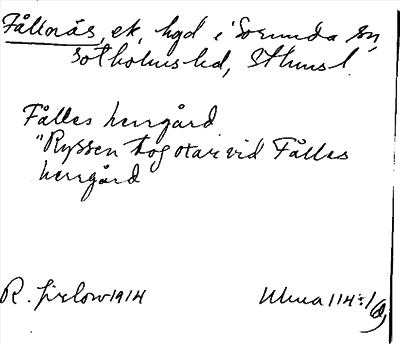 Fållnäs, ek, hgd i Sorunda sn,
Sotholms hd, Sthmsl.
Fålles herrgård
"Ryssen tog otar vid Fålles
herrgård
R. 1914
Ulma 114:1